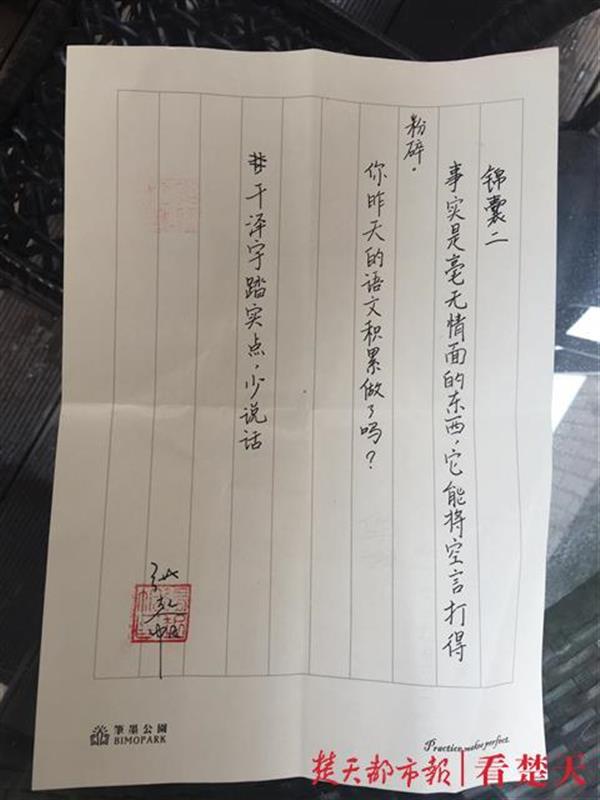 锦囊二
事实是毫无情面的东西，它能将空言打得
粉碎．
你昨天的语文积累做了吗？
#干泽宇踏实点，少说话
筆墨公園
BIMOPARK
Practice makes perfect.
楚天都市報|看楚天